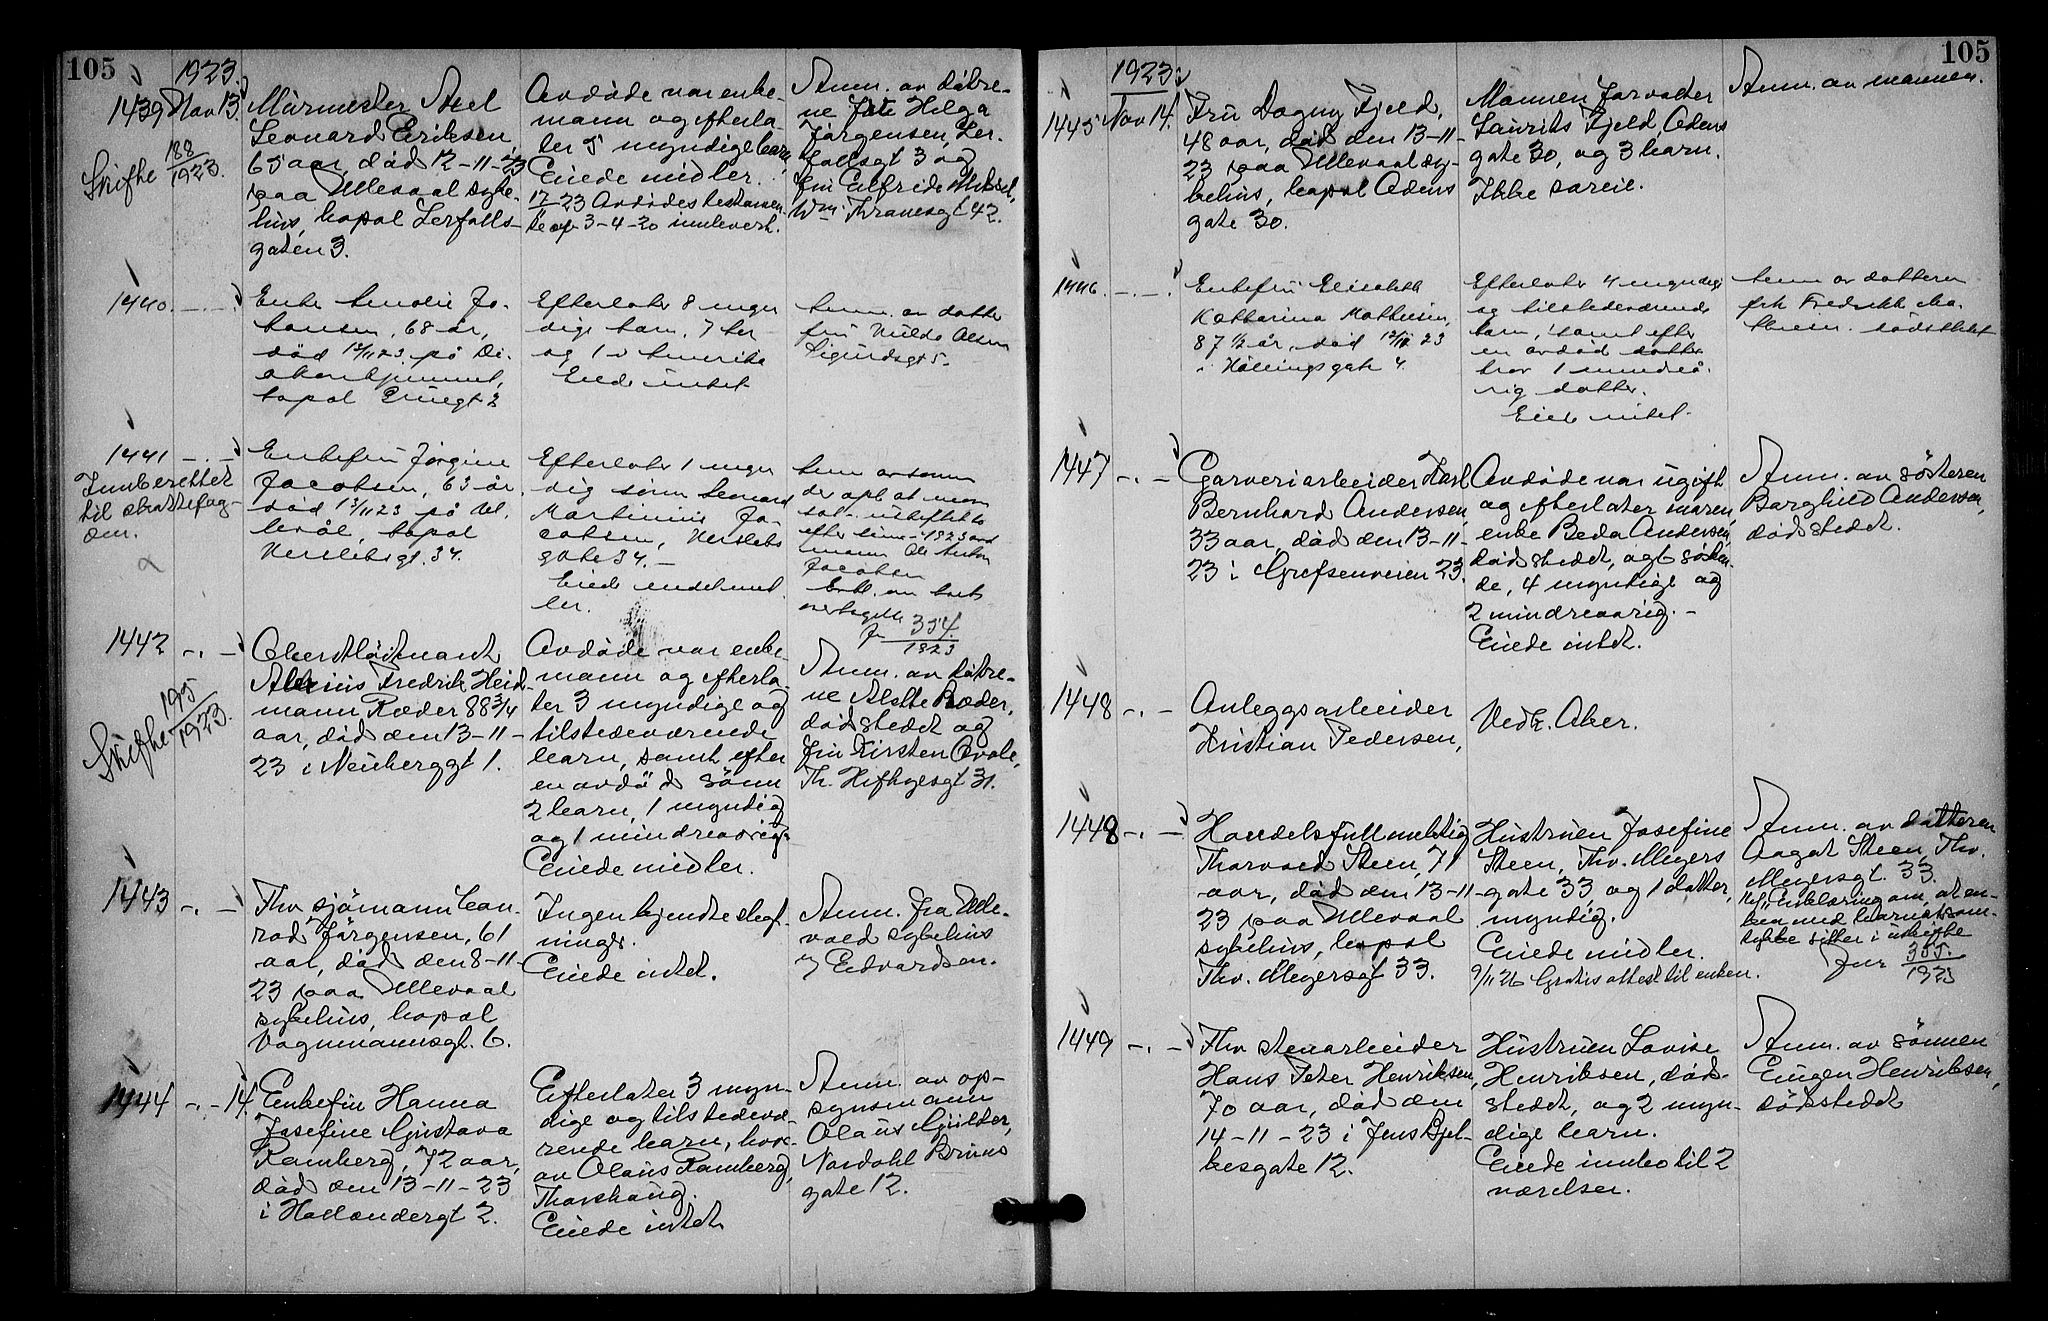 105
1923.
1439 Nov 13.
Skifte 188/1923.
Murmester Axel
Leonard Eriksen,
65 aar, død 12-11-23
paa Ullevaal syke-
hus, bopæl Lerfalls-
gaten 3.
Avdøde var enke-
mann og efterla-
ter 5 myndige barn
Eiede midler.
23 Avdødes testamen-
te av 3-4-20 innlevert.
Anm. av døtre-
ne Helga
Jørgensen, Ler-
fallsgt 3 og
fru Elfride
Wm Thranesgt 42.
1440. -.-.
Enke Amalie Jo-
hansen, 68 år,
død 12/11 23 på Di-
akonhjemmet,
bopæl
Efterlater 8 myn-
dige barn, 7 her
og 1 i Amerika
Eiede intet
Anm. av datter
fru Hulda Olsen
Sigurdsgt 5.
1441 -.-
Innberettet
til skattefog-
den.
Enkefru Jørgine
Jacobsen, 63 år,
død 12/11 23 på Ul-
levål, bopæl
Herslebsgt. 34.
Efterlater 1 myn-
dig sønn
Martinius Ja-
cobsen, Herslebs
gate 34. -
Eiede
Anm av sønn
der opl. at
efter sin 1923
mann
Jacobsen
Erkl. om
overtagelse
354
1923
1442 -.-
Skifte 195/1923.
Oberstløitnant
Fredrik Heid-
mann Ræder 88 3/4
aar, død den 13-11-
23 i Neuberggt 1.
Avdøde var enke-
mann og efterla-
ter 3 myndige og
tilstedeværende
barn, samt efter
en avdød sønn
2 barn, 1 myndig
og 1 mindreaarig.
Eiede midler.
Anm. av døtre-
ne Ræder,
dødsstedet og
fru Kirsten
Th. Kiftyesgt 31.
1443 -.-
Fhv sjømann Con-
rad Jørgensen, 61
aar, død den 8-11-
23 paa Ullevaal
sykehus, bopæl
Vognmannsgt. 6.
Ingen kjendte slegt-
ninger.
Eiede intet.
Anm. fra Ulle-
vaal sykehus
v Edvardsen.
1444 -.-14.
Enkefru Hanna
Josefine Gustava
Ramberg, 72 aar,
død den 13-11-23
i Hollændergt 2.
Efterlater 3 myn-
dige og tilstedevæ-
rende barn, hvor-
av Olaus Ramberg,
Thorshaug.
Eiede intet
Anm. av op-
synsmann
Olaus Gulder,
Nordahl Bruns
gate 12.
105
1923.
1445 Nov 14.
Fru Dagny Fjeld,
48 aar, død den 13-11-
23 paa Ullevaal sy-
kehus, bopæl Odens
gate 30.
Mannen forvalter
Laurits Fjeld, Odens
gate 30, og 3 barn.
Ikke særeie.
Anm. av mannen.
1446. -.-.
Enkefru Elisabeth
Katharina Mathisen,
87 1/2 år, død 12/11 23
i Hallingsgate 4.
Efterlater 4 myndige
og tilstedeværende
barn, samt efter
en avdød datter
1 mindreå-
rig datter.
Eiede intet.
Anm av datteren
frk Fredrikke Ma-
thisen. dødsstedet
1447 -.-
Garveriarbeider Karl
Bernhard Andersen,
33 aar, død den 13-11-
23 i Grefsenveien 23.
Avdøde var ugift
og efterlater moren,
enke Beda Andersen,
dødsstedet, og 6 søsken-
de, 4 myndige og
2 mindreaarig. -
Eiede intet.
Anm. av søsteren
Borghild Andersen,
dødsstedet.
1448 -.-
Anleggsarbeider
Kristian Pedersen,
Vedk. Aker.
1448 -.-
Handelsfullmektig
Thorvald Steen, 71
aar, død den 13-11-
23 paa Ullevaal
sykehus, bopæl
Thv. Meyersgt 33.
Hustruen Josefine
Steen, Thv. Meyers
gate 33, og 1 datter,
myndig.
Eiede midler.
9/11 26 Gratis attest til enken.
Anm. av datteren
Aagot Steen, Thv.
Meyersgt. 33.
Erklæring om, at en-
ken med barnets sam-
tykke sitter i uskifte
Jnr 355.
1923
1449 -.-
Fhv stenarbeider
Hans Peter Henriksen,
70 aar, død den
14-11-23 i Jens Bjel-
kesgate 12.
Hustruen Lovise
Henriksen, død-
stedet, og 2 myn-
dige barn.
Eiede innbo til 2
værelser.
Anm. av sønnen
Eugen Henriksen,
dødsstedet